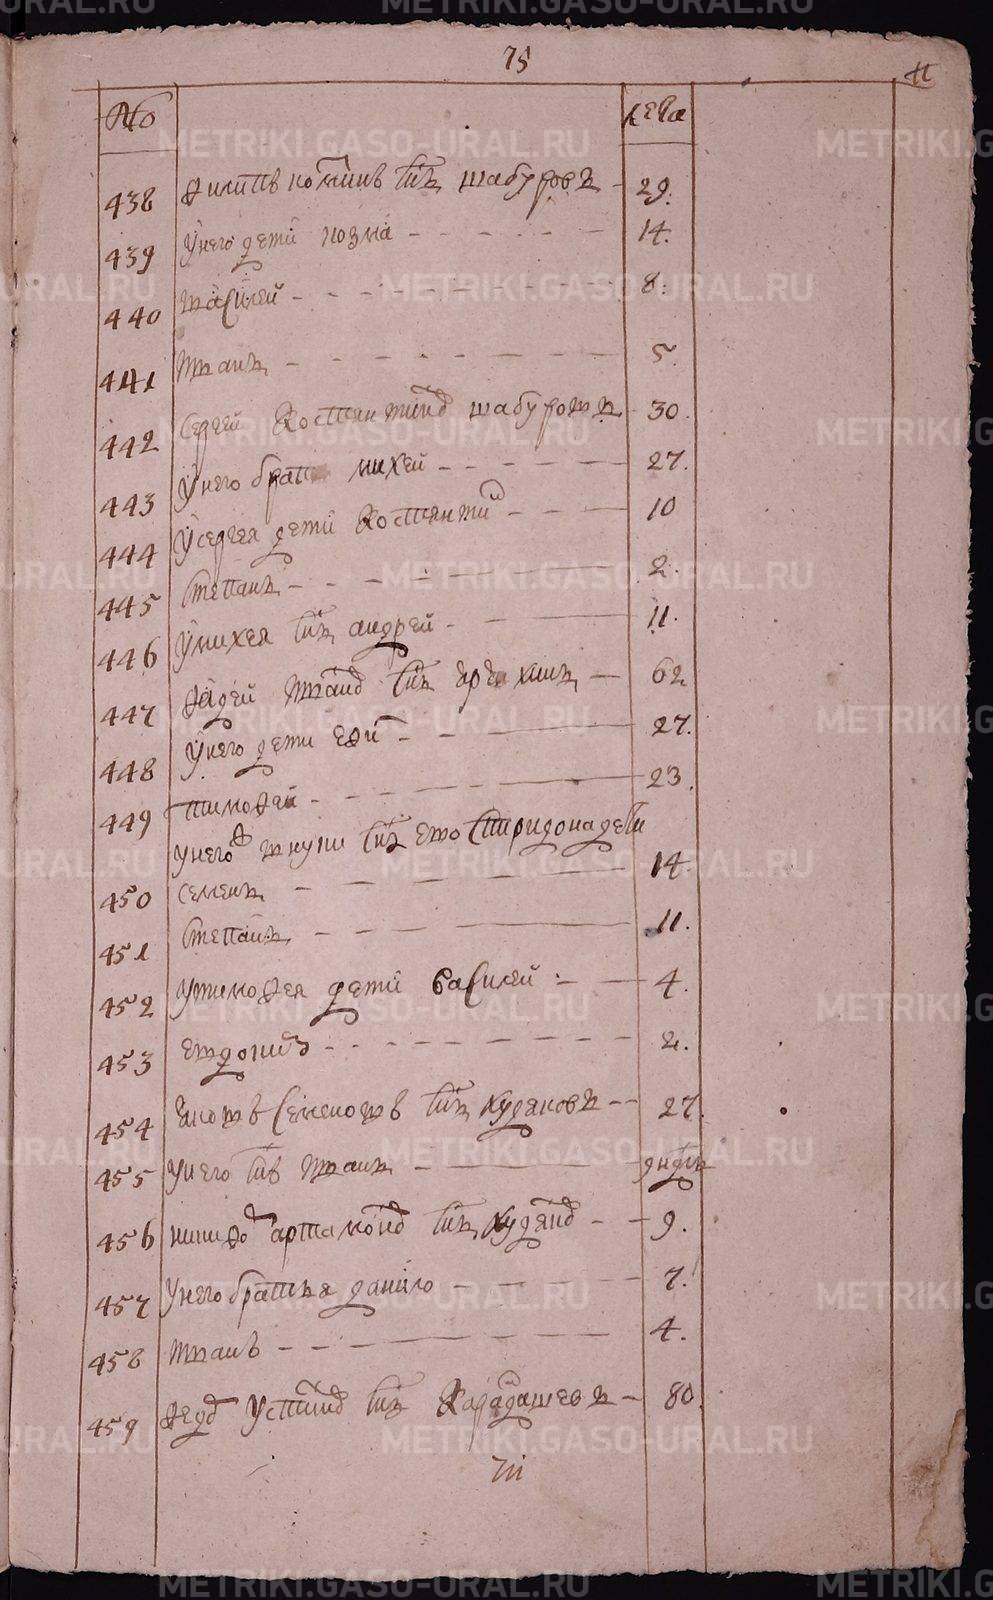 75
№ лета
438 Филипъ козминъ снъ шабуровъ - 29.
439 Унего дети козма - 14.
440 василей - 8.
441 иванъ - 5.
442 Сергей Костянтинов шабуровъ - 30.
443 Унего братъ михей - 27.
444 Усергея дети Костянтин - 10
445 Степанъ - 2.
446 Умихея снъ андрей - 11.
447 Фадей иванов снъ - 62
448 Унего дети - 27.
449 тимофей - 23.
унего внуки сна ево Спиридона дети
450 семенъ - 14.
451 Степанъ - 11.
452 Утимофея дети василей - 4.
453 - 2.
454 яковъ Семеновъ снъ кудяковъ - 27
455 Унего снъ иванъ -
456 никифор артамонов снъ - 9.
457 Унего братья данило - 7.
458 иванъ - 4.
459 Устинов снъ - 80.
METRIKI.GASO-URAL.RU